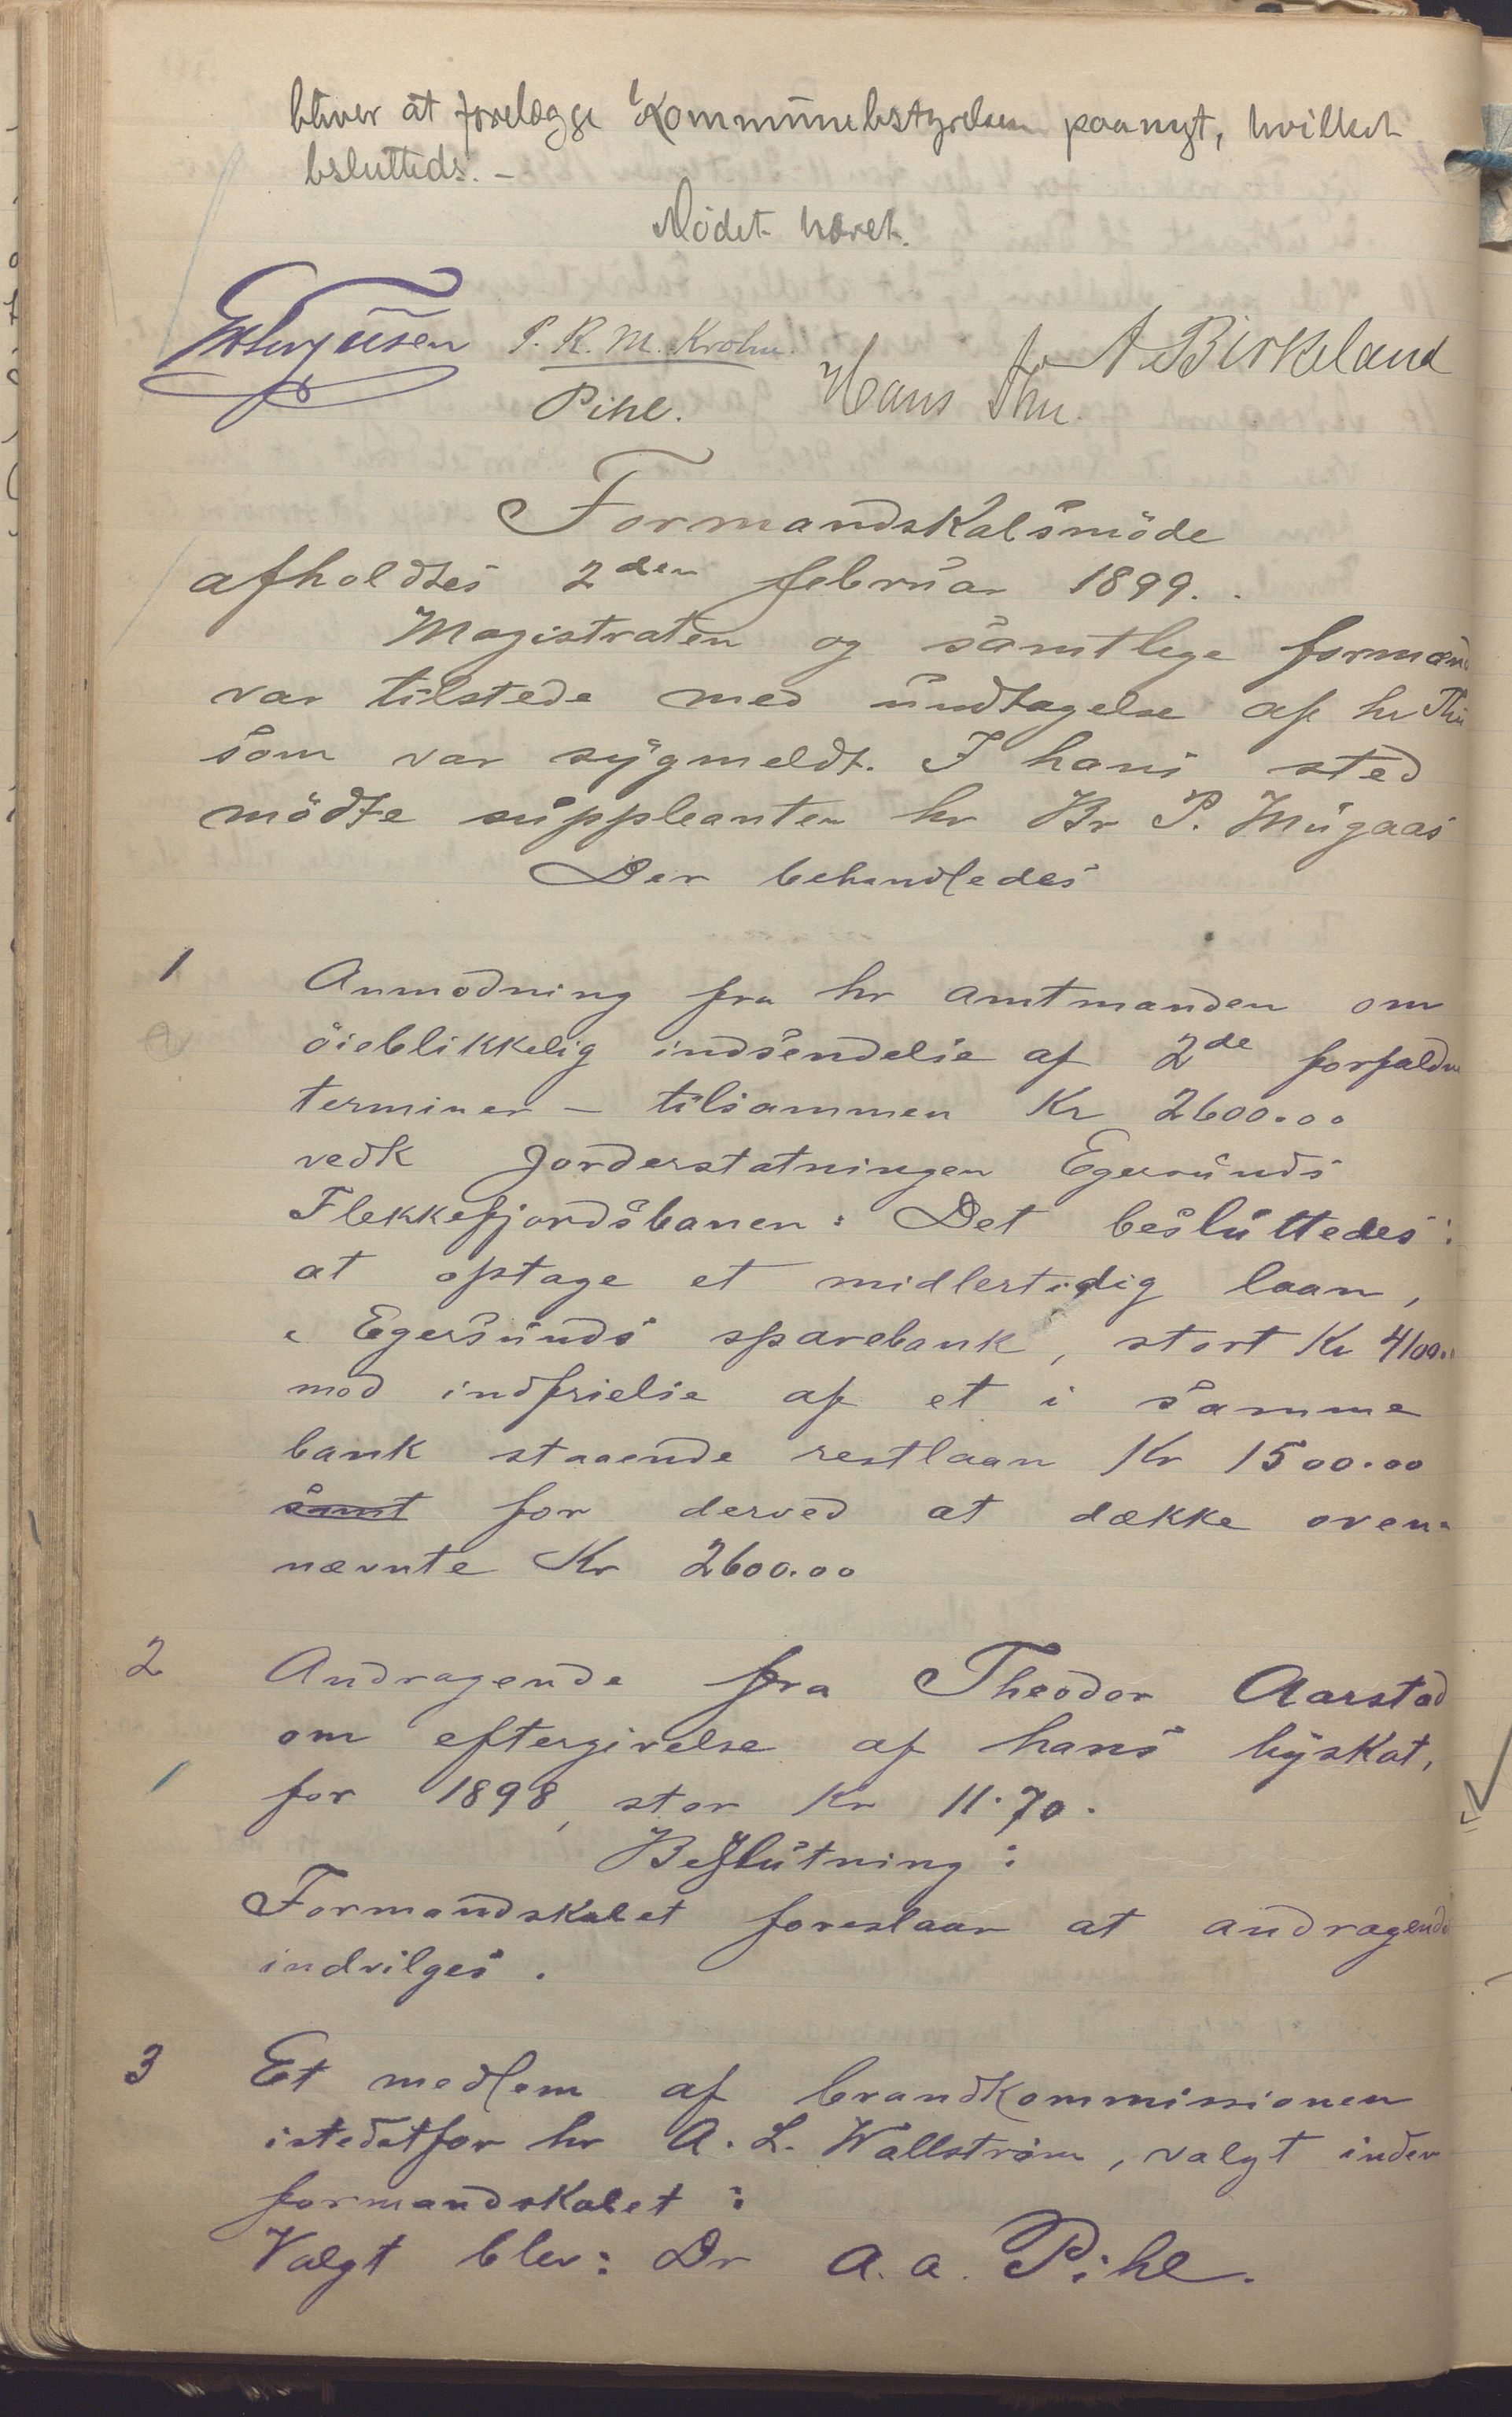 bliver at forelægge Kommunebestyrelsen paanyt, hvilket
besluttedes. –
Mødet hævet.
P. R. M. Krohn. A Birkeland
Pihl. Hans Thu.
Formandskabsmöde
afholdtes 2den februar 1899.
Magistraten og samtlege formænd
var tilstede med undtagelse af hr Thu
som var sygmeldt. I hans sted
mödte suppleanten hr Br P. Mügaas
Der behandledes
1 Anmodning fra hr amtmanden om
öieblikkelig indsendelse af 2de forfaldne
terminer – tilsammen Kr 2600.00
vedk Jorderstatningen Egersunds
Flekkefjordsbanen: Det besluttedes:
at optage et midlertidig laan,
i Egersunds sparebank, stort Kr 4100.00
mod indfrielse af et i samme
bank staaende restlaan Kr 1500.00
samt for derved at dække oven-
nævnte Kr 2600.00
2 Andragende fra Theodor Aarstad
om eftergivelse af hans byskat,
for 1898, stor Kr 11.70.
Beslutning:
Formandskabet foreslaar at andragende
indvilges.
3 Et medlem af brandkommissionen
istedetfor hr A. L. Wallström, valgt inden
formandskabet:
Valgt blev: Dr A. A. Pihl.